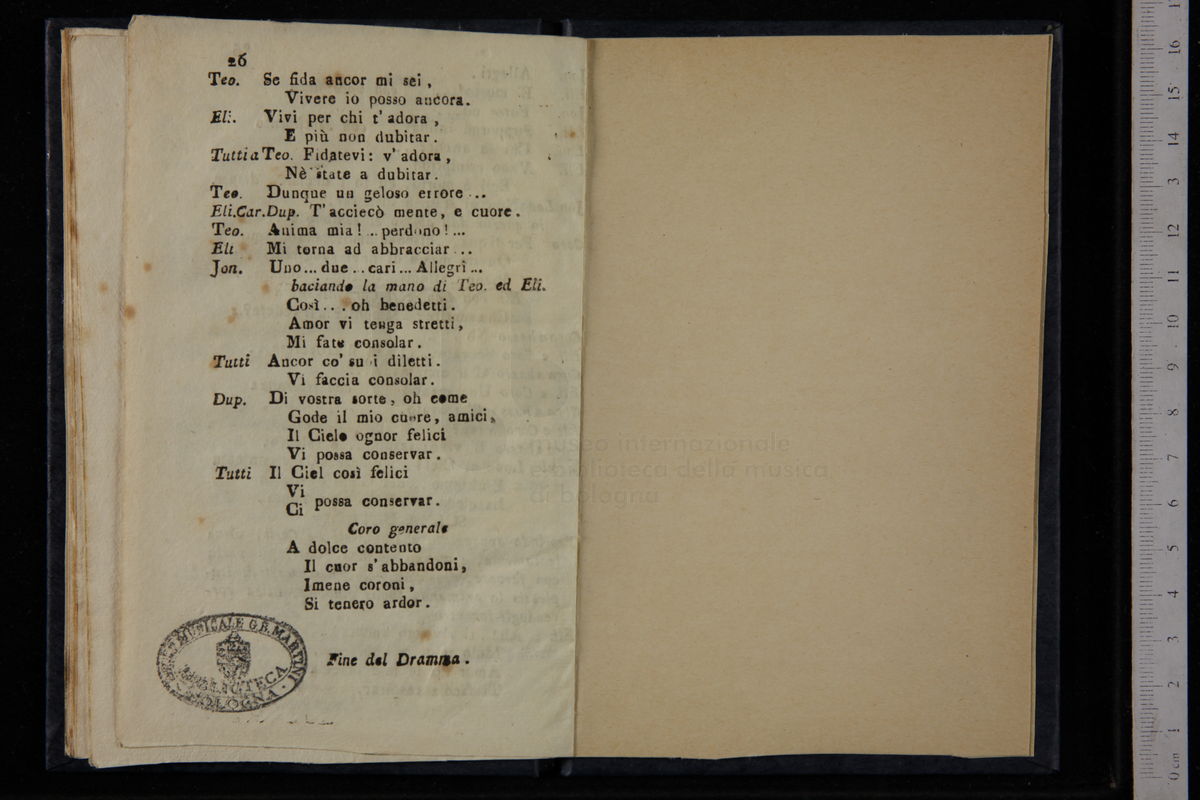 26
Teo. Se fida ancor mi sei,
Vivere io posso ancora.
Eli. Vivi per chi t'adora,
E più non dubitar.
Tutti a Teo. Fidatevi: v'adora,
Nè state a dubitar.
Teo. Dunque un geloso errore...
Eli.Car.Dup. T'acciecò mente, e cuore.
Teo. Anima mia!...perdono!...
Eli Mi torna ad abbracciar...
Jon. Uno...due..cari...Allegri...
baciando la mano di Teo. ed Eli.
Così...oh benedetti.
Amor vi tenga stretti,
Mi fate consolar.
Tutti Ancor co' suoi diletti.
Vi faccia consolar.
Dup. Di vostra sorte, oh come
Gode il mio cuore, amici,
Il Cielo ognor felici
Vi possa conservar.
Tutti Il Ciel così felici
Vi
Ci possa conservar.
Coro generale
A dolce contento
Il cuor s'abbandoni,
Imene coroni,
Si tenero ardor.
Fine del Dramma.
MUSICALE G.B. MARTINI
BIBLIOTECA
BOLOGNA
museo internazionale
e biblioteca della musica
di bologna
0 cm 1 2 3 4 5 6 7 8 9 10 11 12 13 14 15 16 17